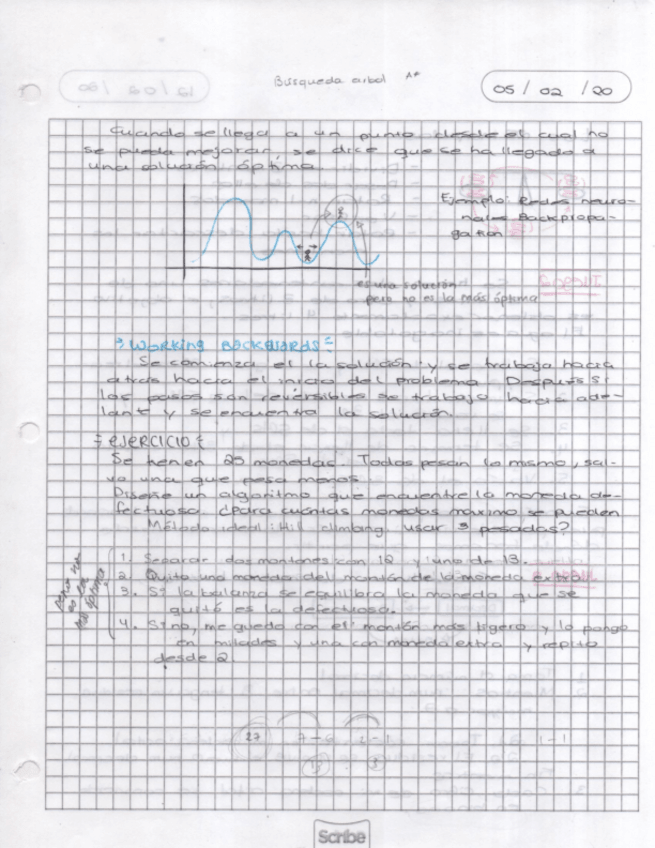 Búsqueda arbol A*
05 / 02 / 20
Cuando se llega a un punto desde el cual no
se pueda mejorar, se dice que se ha llegado a
una solución óptima.
Ejemplo: Redes neuro-
nales Backpropa-
gation
es una solución
pero no es la más óptima
WORKING BACKWARDS
Se comienza en la solución y se trabaja hacia
atras hacia el inicio del problema. Después si
los pasos son reversibles se trabaja hacia ade-
lante y se encuentra la solución.
EJERCICIO
Se tienen 25 monedas. Todas pesan lo mismo, sal-
vo una que pesa menos.
Diseñe un algoritmo que encuentre la moneda de-
fectuosa ¿Para cuántas monedas máximo se pueden
Método ideal: Hill climbing. usar 3 pesadas?
pero no
es la
más óptima
1. Separar dos montones con 12 y uno de 13.
2. Quito una moneda del montón de la moneda extra
3. Si la balanza se equilibra la moneda que se
quitó es la defectuosa.
4. Si no, me quedo con el montón más ligero y lo pongo
en mitades y una con moneda extra y repito
desde 2.
27 7-6 1-1
Scribe